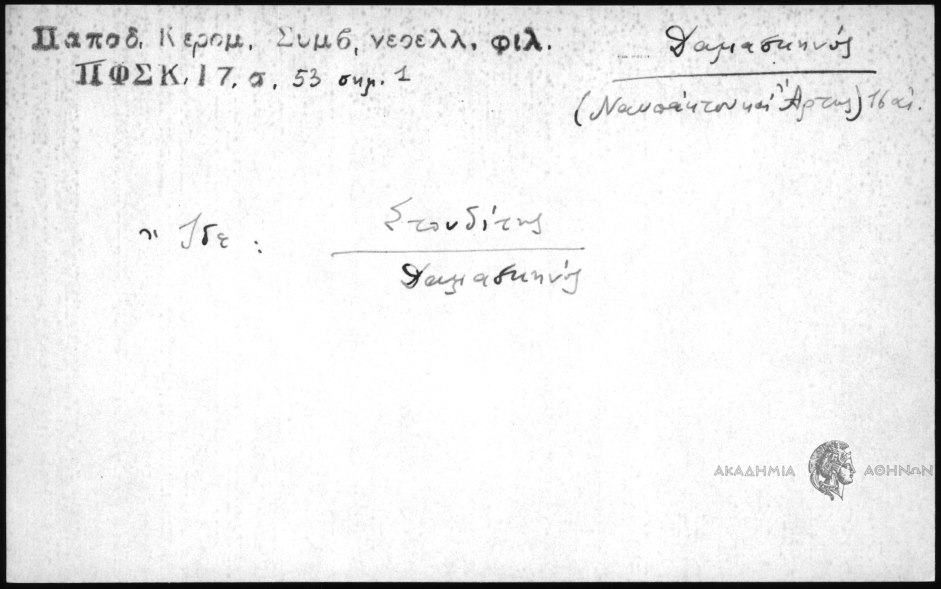 Παποδ. Κεραμ. Συμβ. νεοελλ. φιλ.
ΠΦΣΚ. 17. σ. 53 σημ. 1
Δαμασκηνός
(Ναυπάκτου καὶ Ἄρτης) 16 αἰ.
Ἴδε : Στουδίτης
Δαμασκηνός
ΑΚΑΔΗΜΙΑ ΑΘΗΝΩΝ